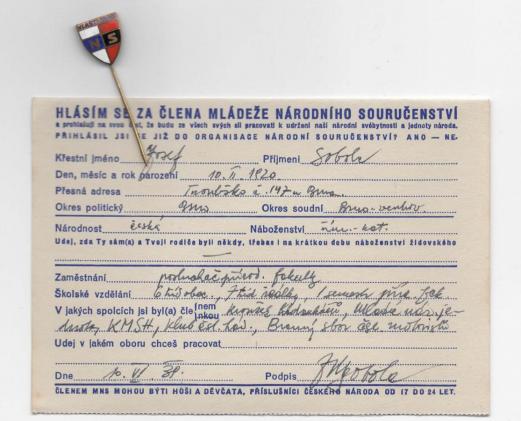 VLASTI ZDAR
NS
HLÁSÍM SE ZA ČLENA MLÁDEŽE NÁRODNÍHO SOURUČENSTVÍ
a prohlašuji na svou čest, že budu ze všech svých sil pracovati k udržení naší národní svébytnosti a jednoty národa.
PŘIHLÁSIL JSI SE JIŽ DO ORGANISACE NÁRODNÍ SOURUČENSTVÍ? ANO — NE.
Křestní jméno Josef Příjmení Sobola
Den, měsíc a rok narození 10. II. 1920
Přesná adresa Troubsko č. 147 u Brna
Okres politický Brno Okres soudní Brno-venkov.
Národnost česká Náboženství řím.-kat.
Udej, zda Ty sám(a) a Tvoji rodiče byli někdy, třebas i na krátkou dobu náboženství židovského
—
Zaměstnání posluchač přírod. fakulty
Školské vzdělání 6 tříd obec., 7 tříd reálky, 1 semestr přír. fak.
V jakých spolcích jsi byl(a) čle(nem nkou) Mladá nár. je-
dnota, KMSH, Klub čsl. , Branný sbor čsl. motoristů
Udej v jakém oboru chceš pracovat
Dne 10. VI. 39. Podpis JSobola
ČLENEM MNS MOHOU BÝTI HOŠI A DĚVČATA, PŘÍSLUŠNÍCI ČESKÉHO NÁRODA OD 17 DO 24 LET.